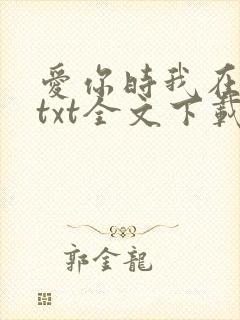 愛你時我在
txt全文下載
郭金龍